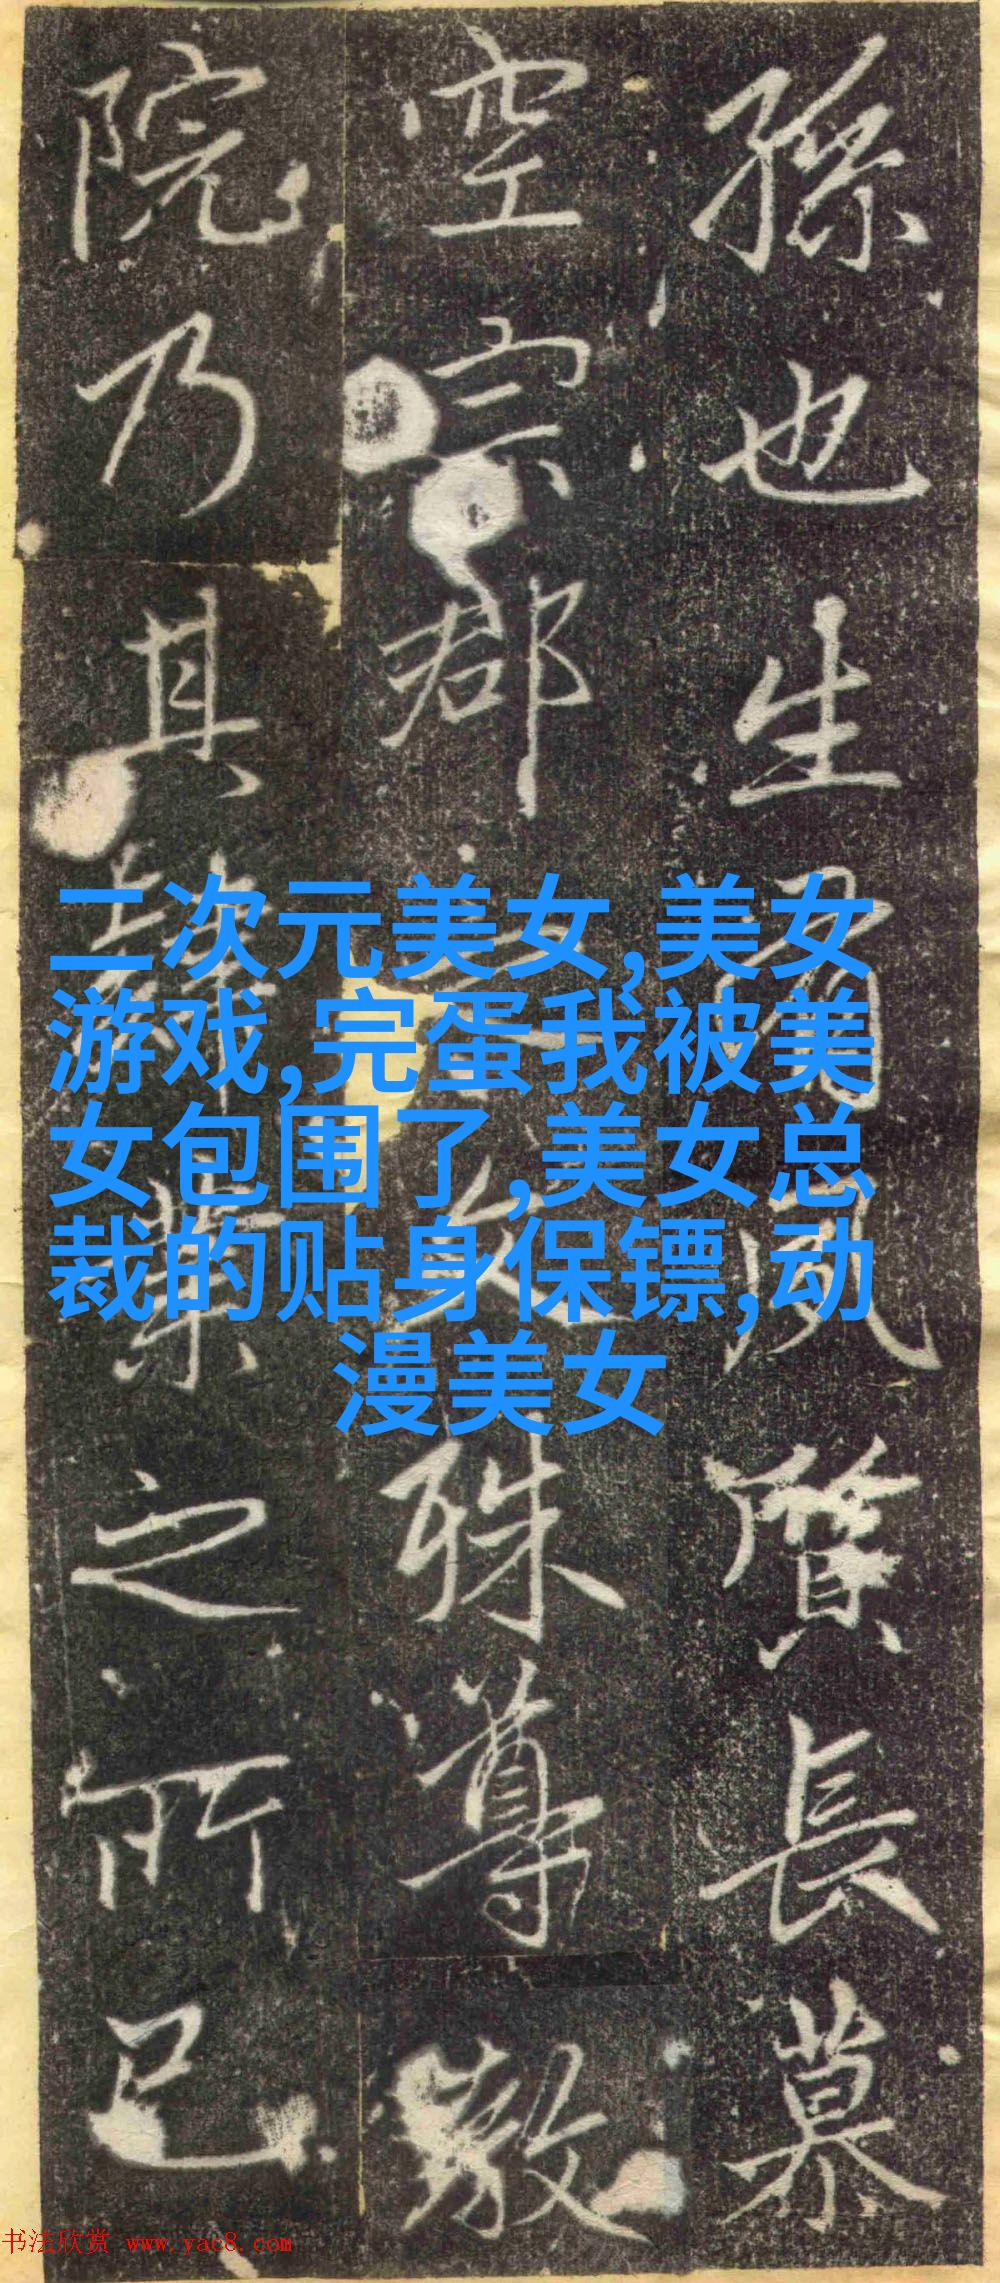 孫也生有風質長慕
空宗郡殊尊
院乃其肄業之所已
二次元美女,美女
游戏,完蛋我被美
女包围了,美女总
裁的贴身保镖,动
漫美女
书法欣赏 www.yac8.com